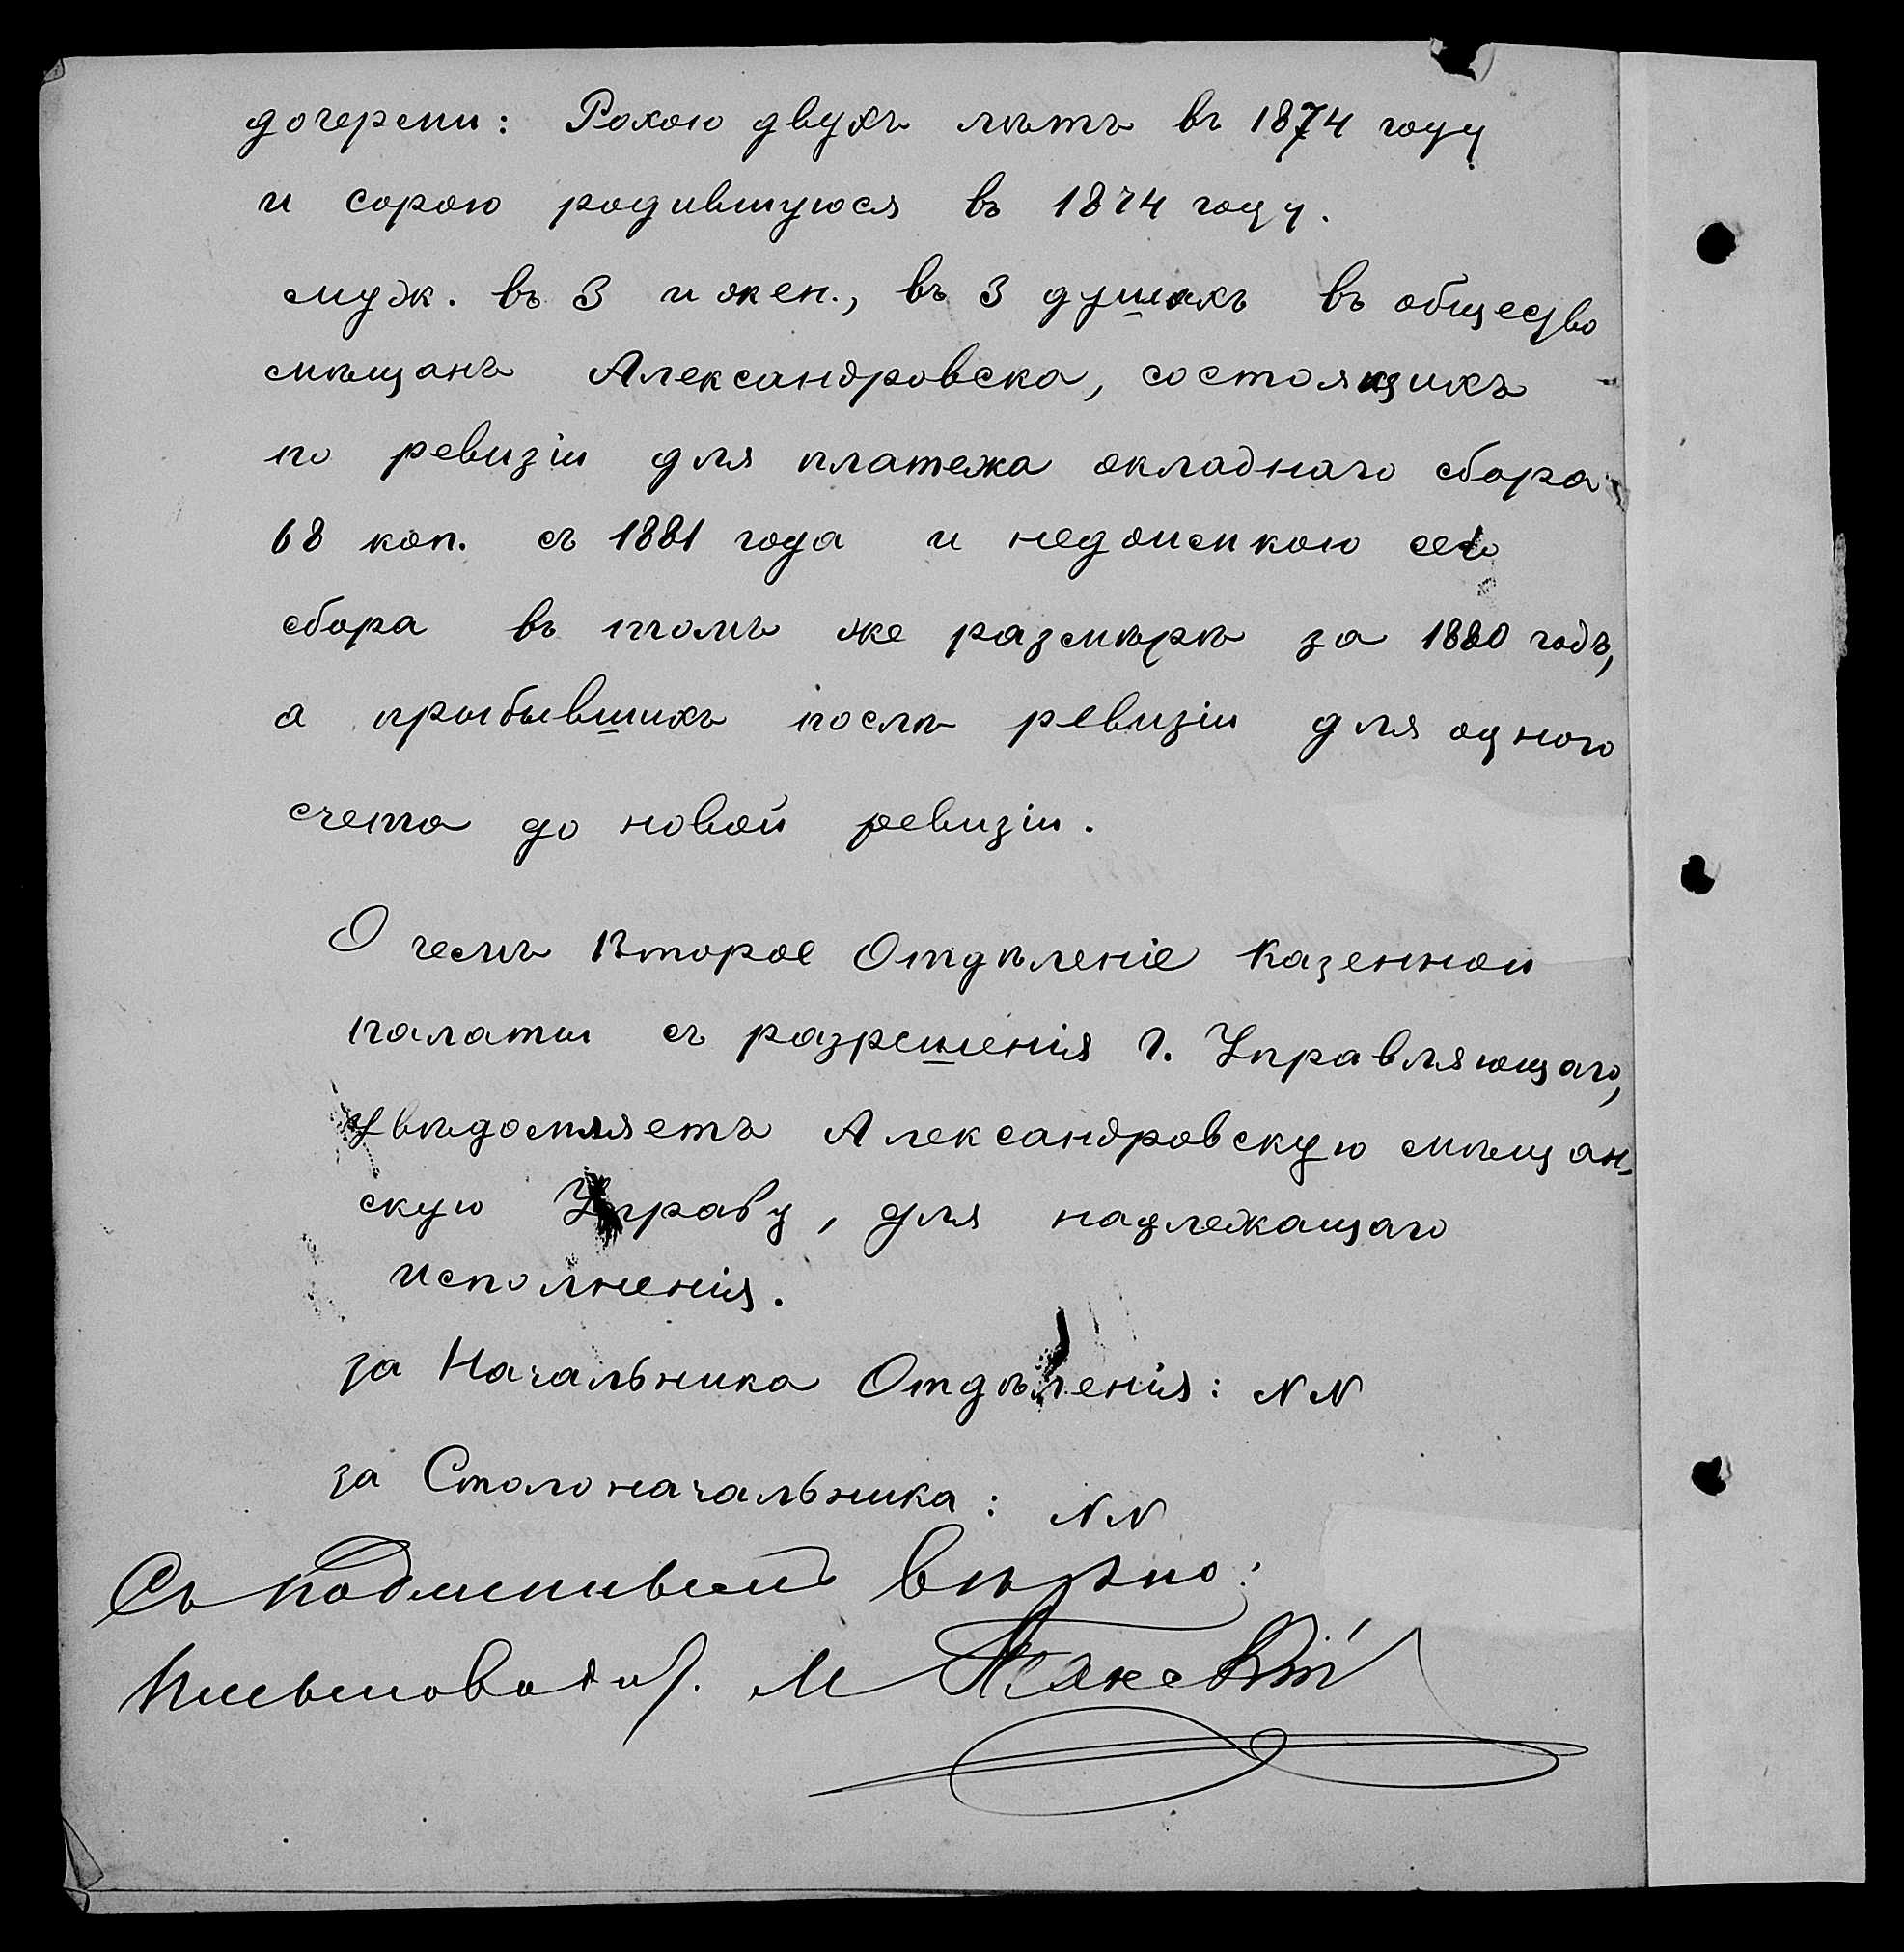 дочерьми: Рохою двухъ лѣтъ въ 1874 году
и сорою родившуюся въ 1874 году.
муж. въ 3 и жен., въ 3 душахъ въ общество
мѣщанъ Александровска, состоящихъ
по ревизіи для платежа окладнаго сбора
68 коп. съ 1881 года и недоимкою сего
сбора въ томъ же размѣрѣ за 1880 годъ,
а прибывшихъ послѣ ревизіи для одного
счета до новой ревизіи.
О чемъ Второе Отдѣленіе Казенной
палаты съ разрешенія г. Управляющаго,
увѣдомляетъ Александровскую мѣщан-
скую Управу, для надлежащаго
исполненія.
за Начальника Отдѣленія: NN
за Столоначальника: NN
Съ подлиннымъ вѣрно:
Письмовод. М